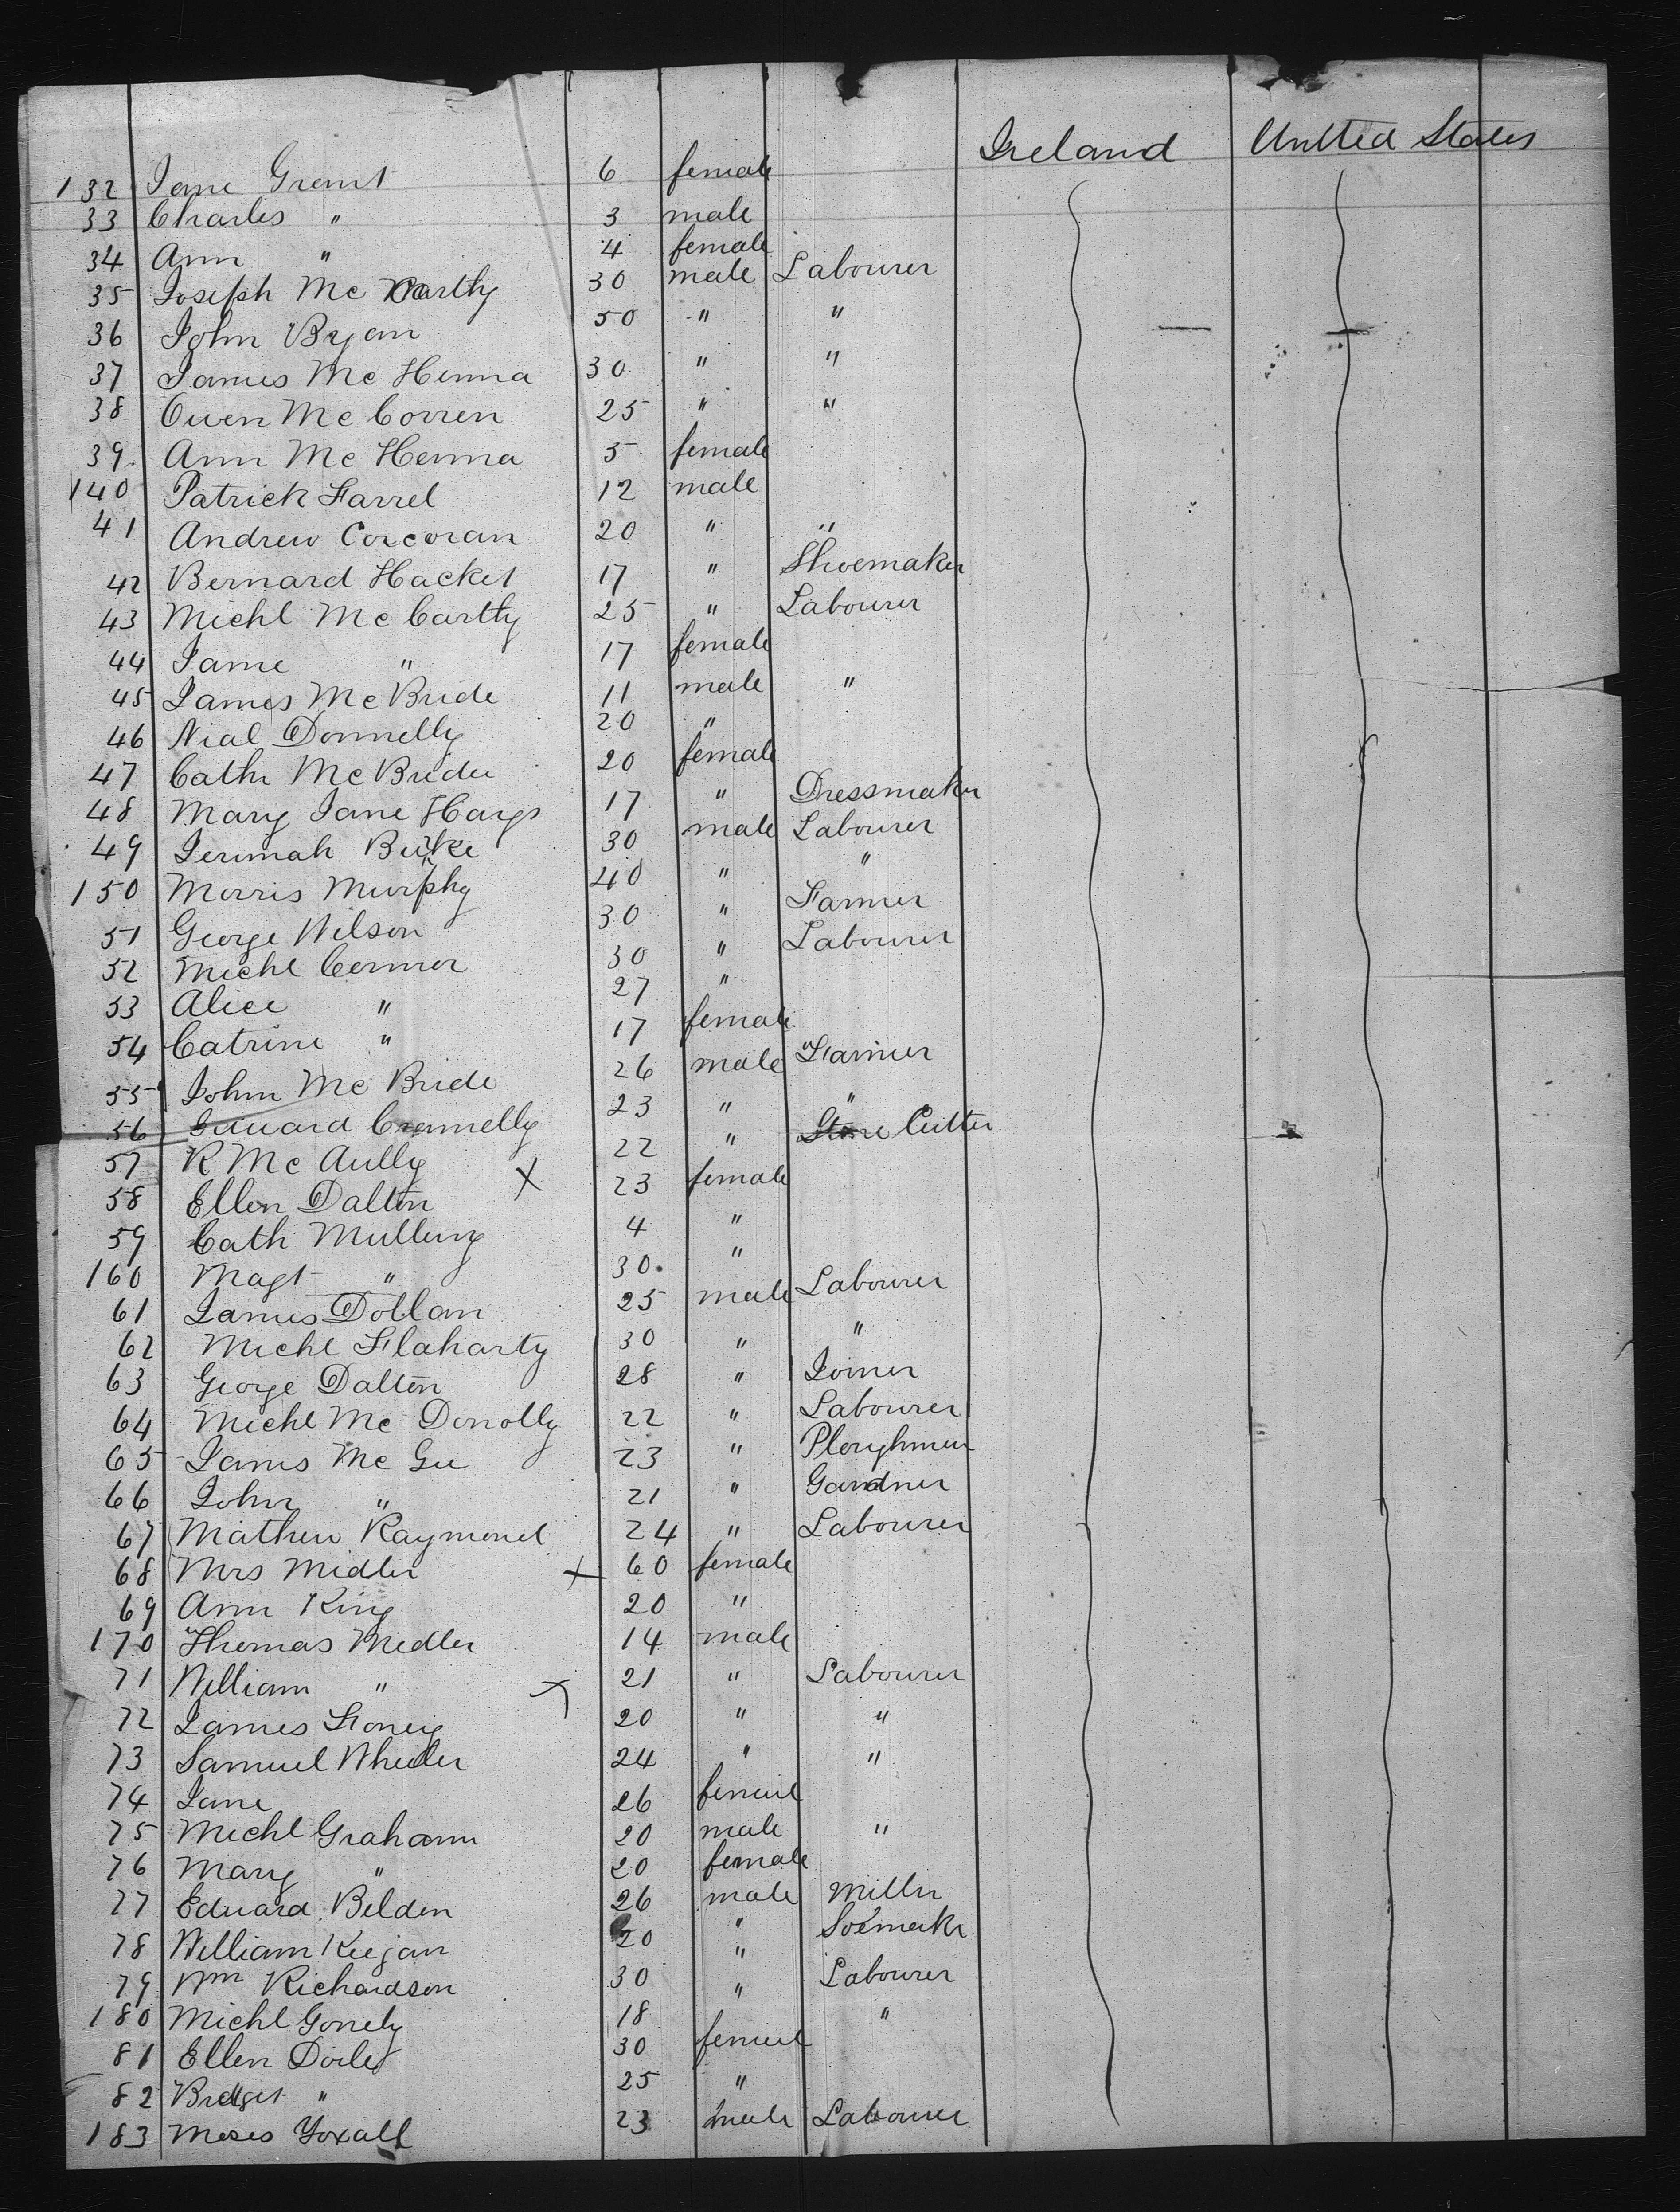 Ireland United States
132 Jane Grant 6 female
33 Charles " 3 male
34 Ann " 4 female
35 Joseph Mc Carthy 30 male Labourer
36 John Bryan 50 " "
37 James Mc Henna 30 " "
38 Owen Mc Corren 25 " "
39 Ann Mc Henna 5 female
140 Patrick Farrel 12 male
41 Andrew Corcoran 20 " "
42 Bernard Hacket 17 " Shoemaker
43 Michl Mc Carthy 25 " Labourer
44 Jane " 17 female
45 James Mc Bride 11 male "
46 Nial Donnelly 20 "
47 Cath Mc Bride 20 female
48 Mary Jane Hays 17 " Dressmaker
49 Jerimah Burke 30 male Labourer
150 Morris Murphy 40 " "
51 George Wilson 30 " Farmer
52 Michl Connor 30 " Labourer
53 Alice " 27 "
54 Catrine " 17 female
55 John Mc Bride 26 male Farmer
56 Connelly 23 " "
57 R Mc Aully 22 " Stone Cutter
58 Ellen Dalton X 23 female
59 Cath Mulling 4 "
160 Magt " 30 "
61 James Dollan 25 male Labourer
62 Michl Flaharty 30 " "
63 George Dalton 28 " Joiner
64 Michl Mc Donolly 22 " Labourer
65 James Mc Gee 23 " Ploughman
66 John " 21 " Gardner
67 Mathew Raymond 24 " Labourer
68 Mrs Midler X 60 female
69 Ann King 20 "
170 Thomas Medler 14 male
71 William " X 21 " Labourer
72 James 20 " "
73 Samuel Wheeler 24 " "
74 Jane 26 femeil
75 Michl Graham 20 male "
76 Mary " 20 female
77 Eduard Belden 26 male Miller
78 William Keejan 20 " Soemaker
79 Wm Richardson 30 " Labourer
180 Michl Gonely 18 " "
81 Ellen Doile 30 femeil
82 Bridget " 25 "
183 Moses Yoxall 23 male Labourer